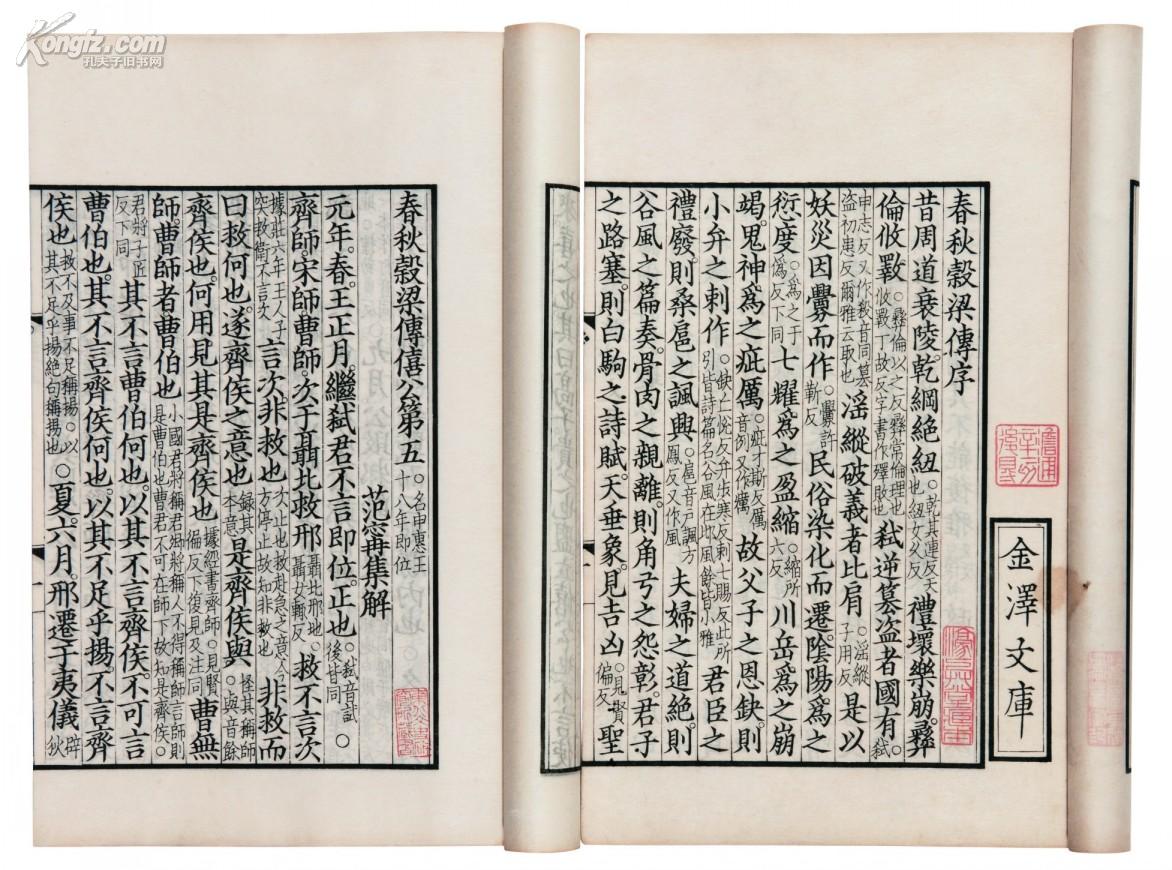 Kongfz.com
孔夫子旧书网
金澤文庫
春秋穀梁傳序
昔周道衰陵。乾綱絶紐。○乾其連反天也紐女久反禮壞樂崩。彝
倫攸斁。○彝倫以之反彝常倫理也攸斁丁故反字書作殬敗也弑逆篡盗者國有。弑
申志反又作殺音同篡初患反爾雅云取也淫縱破義者比肩。○淫縱子用反是以
妖災因釁而作。○釁許靳反民俗染化而遷。隂陽爲之
愆度。○爲之于僞反下同七耀爲之盈縮。○縮所六反川岳爲之崩
竭。鬼神爲之疵厲。○疵才斯反厲音例又作癘故父子之恩缺。則
小弁之刺作。○缺丘悅反弁步寒反刺七賜反此所引皆詩篇名谷風在邶風餘皆小雅君臣之
禮廢。則桑扈之諷興。○扈音戸諷方鳳反又作風夫婦之道絶。則
谷風之篇奏。骨肉之親離。則角弓之怨彰。君子
之路塞。則白駒之詩賦。天垂象。見吉凶。○見賢偏反聖
春秋穀梁傳僖公第五○名申惠王十八年即位
范甯集解
元年。春。王正月。繼弑君不言即位。正也。○弑音試後皆同○
齊師。宋師。曹師。次于聶北救邢。聶北邢地○聶女輒反救不言次
據莊六年王人子突救衛不言次言次。非救也。次止也救赴急之意今方停止故知非救也非救而
曰救何也。遂齊侯之意也。録其本意是齊侯與。怪其稱師○與音餘
齊侯也。何用見其是齊侯也。據經書齊師○見賢徧反下復見及注同曹無
師。曹師者。曹伯也。小國君將稱君卿將稱人不得稱師言師則是曹伯也曹君不可在師下故知是齊侯○
君將子匠反下同其不言曹伯何也。以其不言齊侯。不可言
曹伯也。其不言齊侯何也。以其不足乎揚。不言齊
侯也。救不及事不足稱揚○以其不足乎揚絶句稱揚也○夏。六月。邢遷于夷儀。辟狄